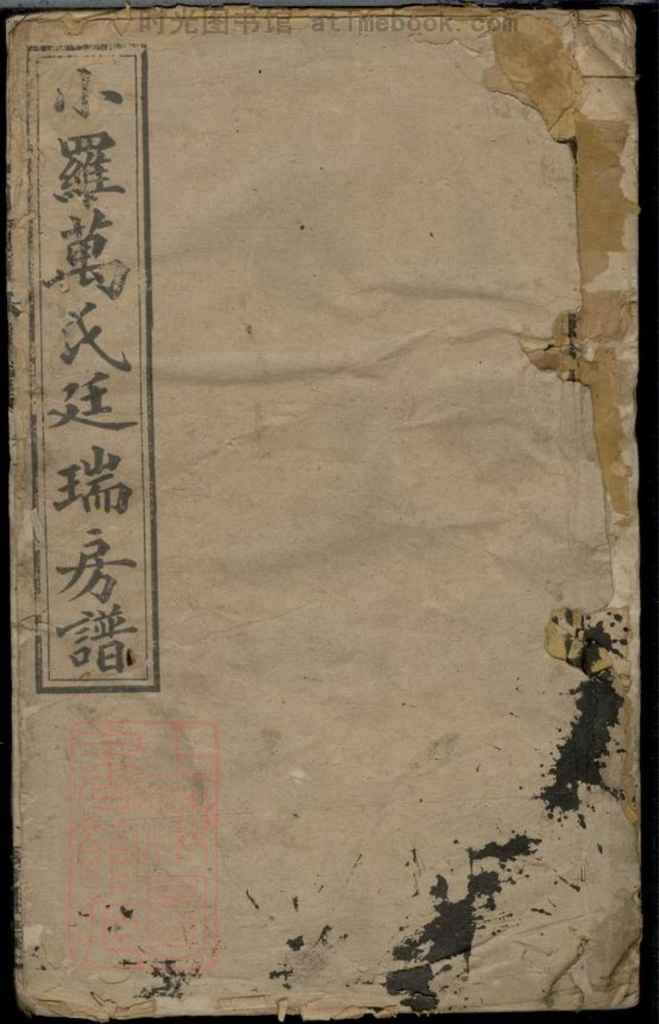 时光图书馆 atimebook.com
小羅萬氏廷瑞房譜